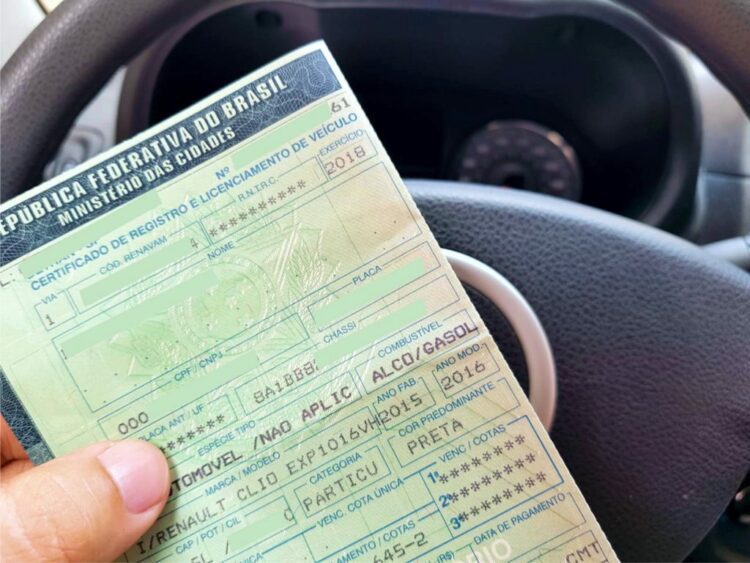 REPÚBLICA FEDERATIVA DO BRASIL
MINISTÉRIO DAS CIDADES
Nº 61
CERTIFICADO DE REGISTRO E LICENCIAMENTO DE VEÍCULO
VIA CÓD. RENAVAM R.N.T.R.C. EXERCÍCIO
1 4 ********** 2018
NOME
CPF / CNPJ PLACA
000
PLACA ANT / UF CHASSI
******* 8A1BB8
ESPÉCIE TIPO COMBUSTÍVEL
AUTOMOVEL /NAO APLIC ALCO/GASOL
MARCA / MODELO ANO FAB. ANO MOD.
I/RENAULT CLIO EXP1016VH 2015 2016
CAP / POT / CIL CATEGORIA COR PREDOMINANTE
PARTICU PRETA
VENC. COTA ÚNICA VENC / COTAS
1ª*******
2ª*******
3ª*******
LAMENTO / COTAS
645-2
(R$) DATA DE PAGAMENTO